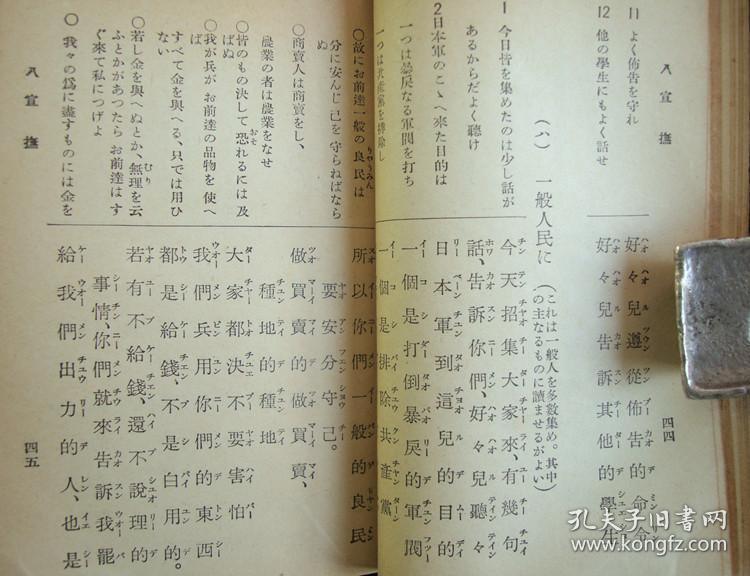 八 宣 撫
11 よく佈告を守れ
12 他の學生にもよく話せ
(八) 一般人民に (これは一般人を多數集め。其中の主なるものに讀ませるがよい)
1 今日皆を集めたのは少し話があるからだよく聽け
2 日本軍のこゝへ來た目的は
一つは暴戾なる軍閥を打ち
一つは共產黨を排除し
好々兒遵從佈告的命令
好々兒告訴其他的學生
四四
今天招集大家來、有幾句
話、告訴你們、好々兒聽々
日本軍到這兒的目的
一個是打倒暴戾的軍閥
一個是排除共產黨
○故にお前達一般の良民は
分に安んじ己を守らねばならぬ
○商賣人は商賣をし、
農業の者は農業をなせ
○皆のもの決して恐れるには及ばぬ
○我が兵が お前達の品物を使へ
すべて金を與へる、只では用ひない
○若し金を與へぬとか、無理を云
ふとかがあつたら お前達はす
ぐ來て私につげよ
○我々の爲に盡すものには金を
八 宣 撫
所以你們一般的良民
要安分守己。
做買賣的做買賣、
種地的種地
大家都決不要害怕
我們兵用你們的東西
都是給錢、不是白用的。
若有不給錢、還不說理的
事情、你們就來告訴我罷
給我們出力的人、也是
四五
孔夫子旧书网
www.kongfz.com